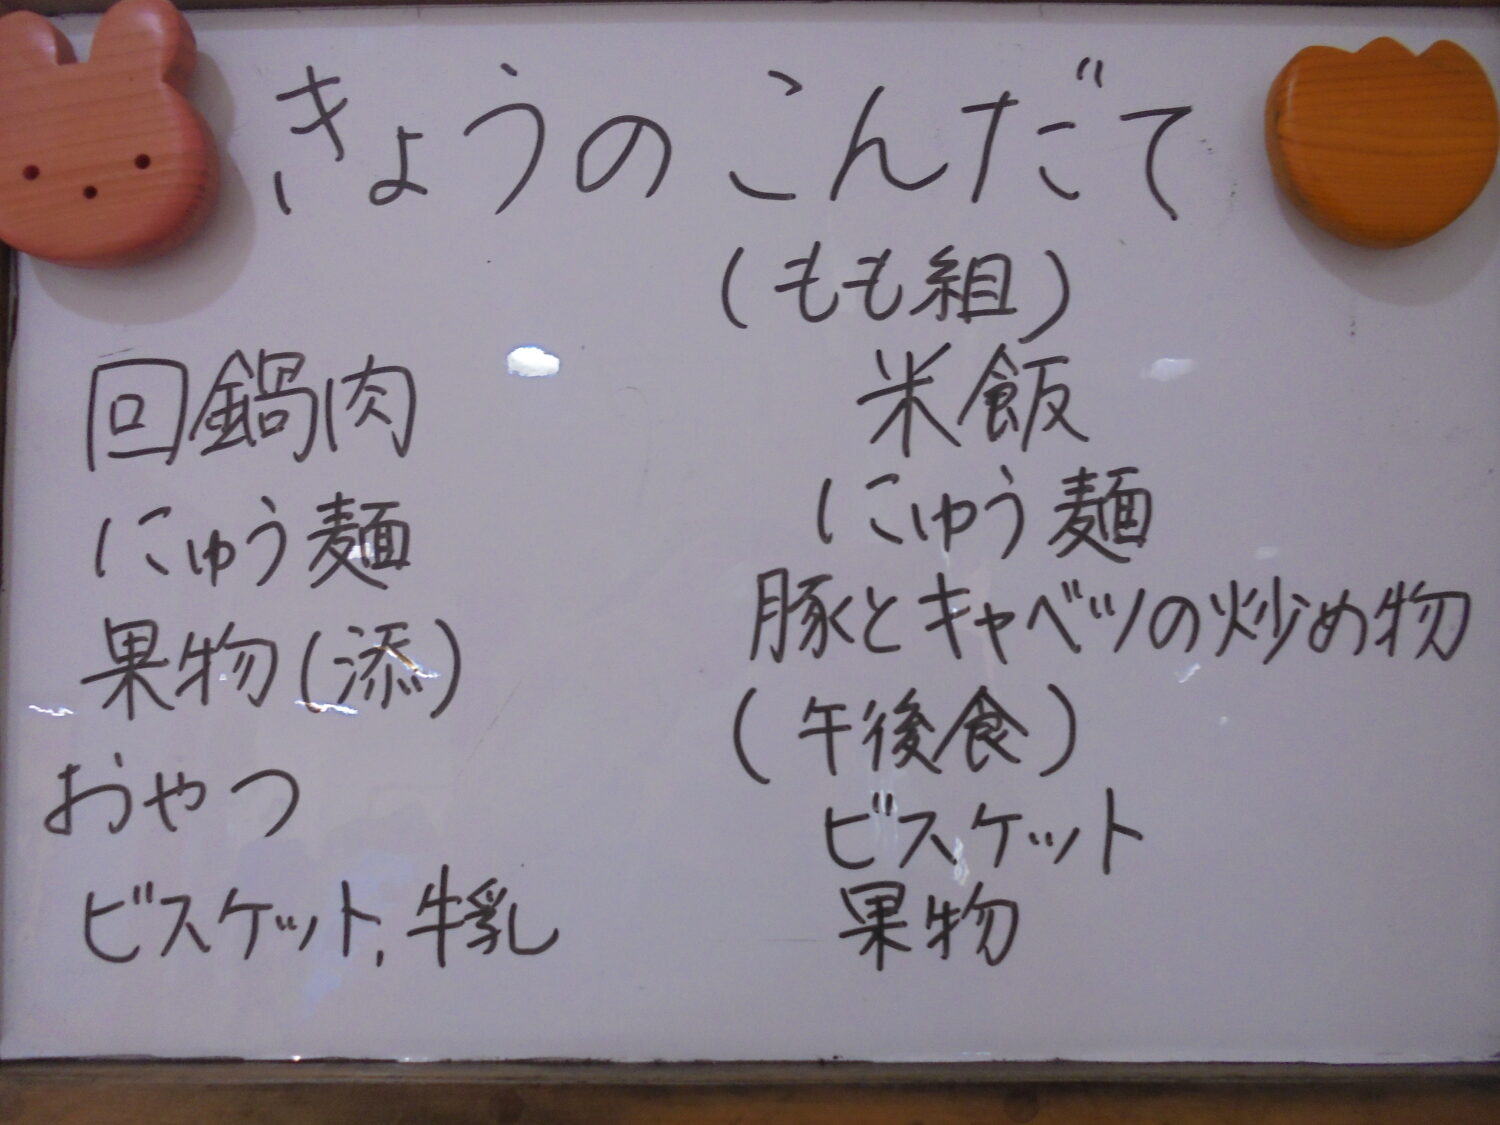 きょうのこんだて
回鍋肉
にゅう麺
果物(添)
おやつ
ビスケット,牛乳
(もも組)
米飯
にゅう麺
豚とキャベツの炒め物
(午後食)
ビスケット
果物